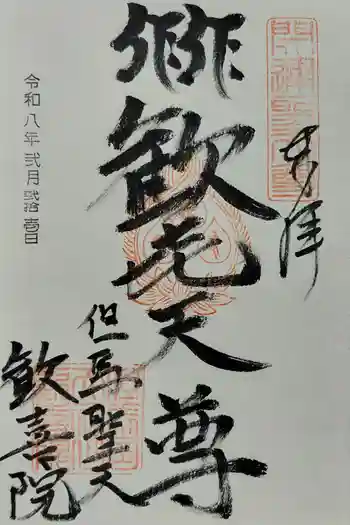 奉拝
歓喜天尊
但馬聖天
歓喜院
令和八年弐月弐拾壱日